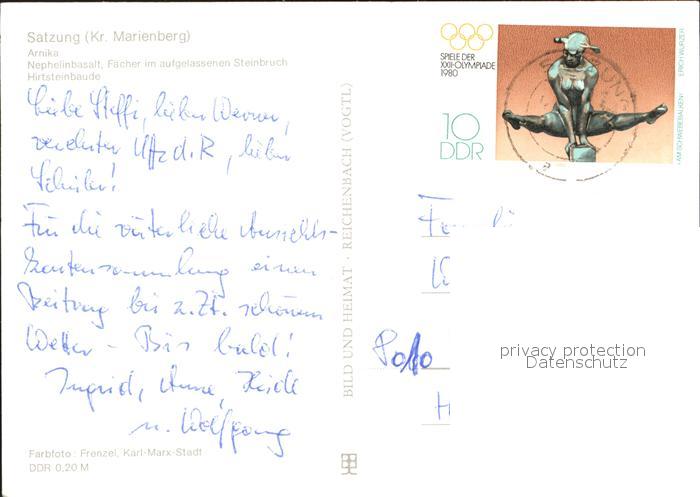 Satzung (Kr. Marienberg)
Arnika
Nephelinbasalt, Fächer im aufgelassenen Steinbruch
Hirtsteinbaude
Liebe Steffi, lieber Werner,
verehrter Uffz d. R., lieber
Schüler!
Für die väterliche Ansichts-
kartensammlung einen
Beitrag bei z. Zt. schönem
Wetter – Bis bald!
Ingrid, Anne, Heide
u. Wolfgang
Farbfoto: Frenzel, Karl-Marx-Stadt
DDR 0,20 M
BILD UND HEIMAT · REICHENBACH (VOGTL)
SPIELE DER
XXII·OLYMPIADE
1980
10
DDR
ERICH WURZER
»AM SCHWEBEBALKEN«
privacy protection
Datenschutz